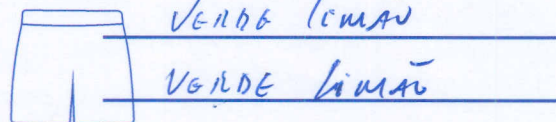 VERDE LIMÃO
VERDE LIMÃO